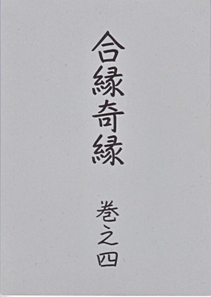 合縁奇縁
巻之四